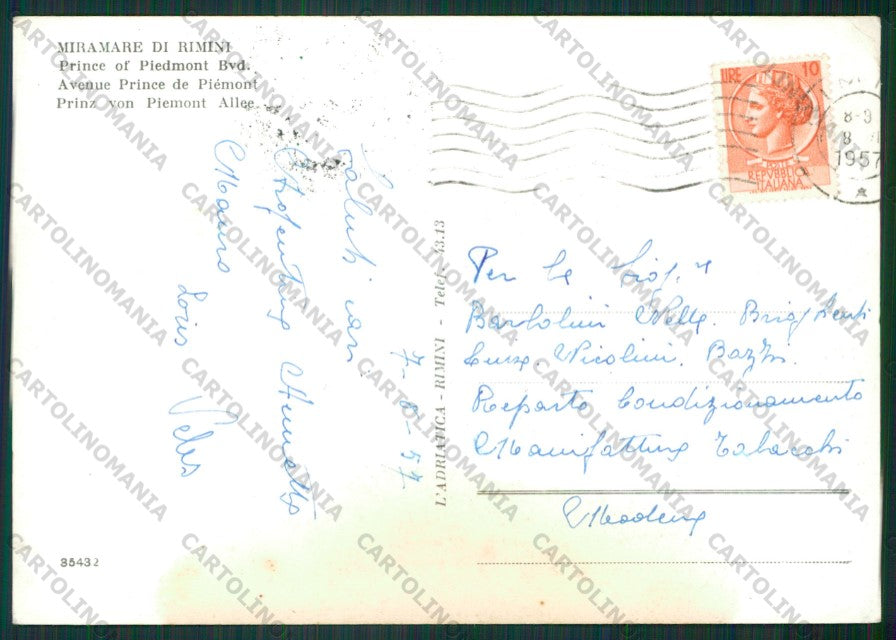 MIRAMARE DI RIMINI
Prince of Piedmont Bvd.
Avenue Prince de Piémont
Prinz von Piemont Allee
LIRE 10
REPVBBLICA
ITALIANA
8-9
8
1957
Saluti cari
Annetta
Mauro
Loris Velis
7-8-57
L'ADRIATICA - RIMINI - Telef. 43.13
Per le Sig.re
Bartolini Nella. Brighenti
Nicolini.
Reparto Condizionamento
Manifattura Tabacchi
Modena
35432
CARTOLINOMANIA